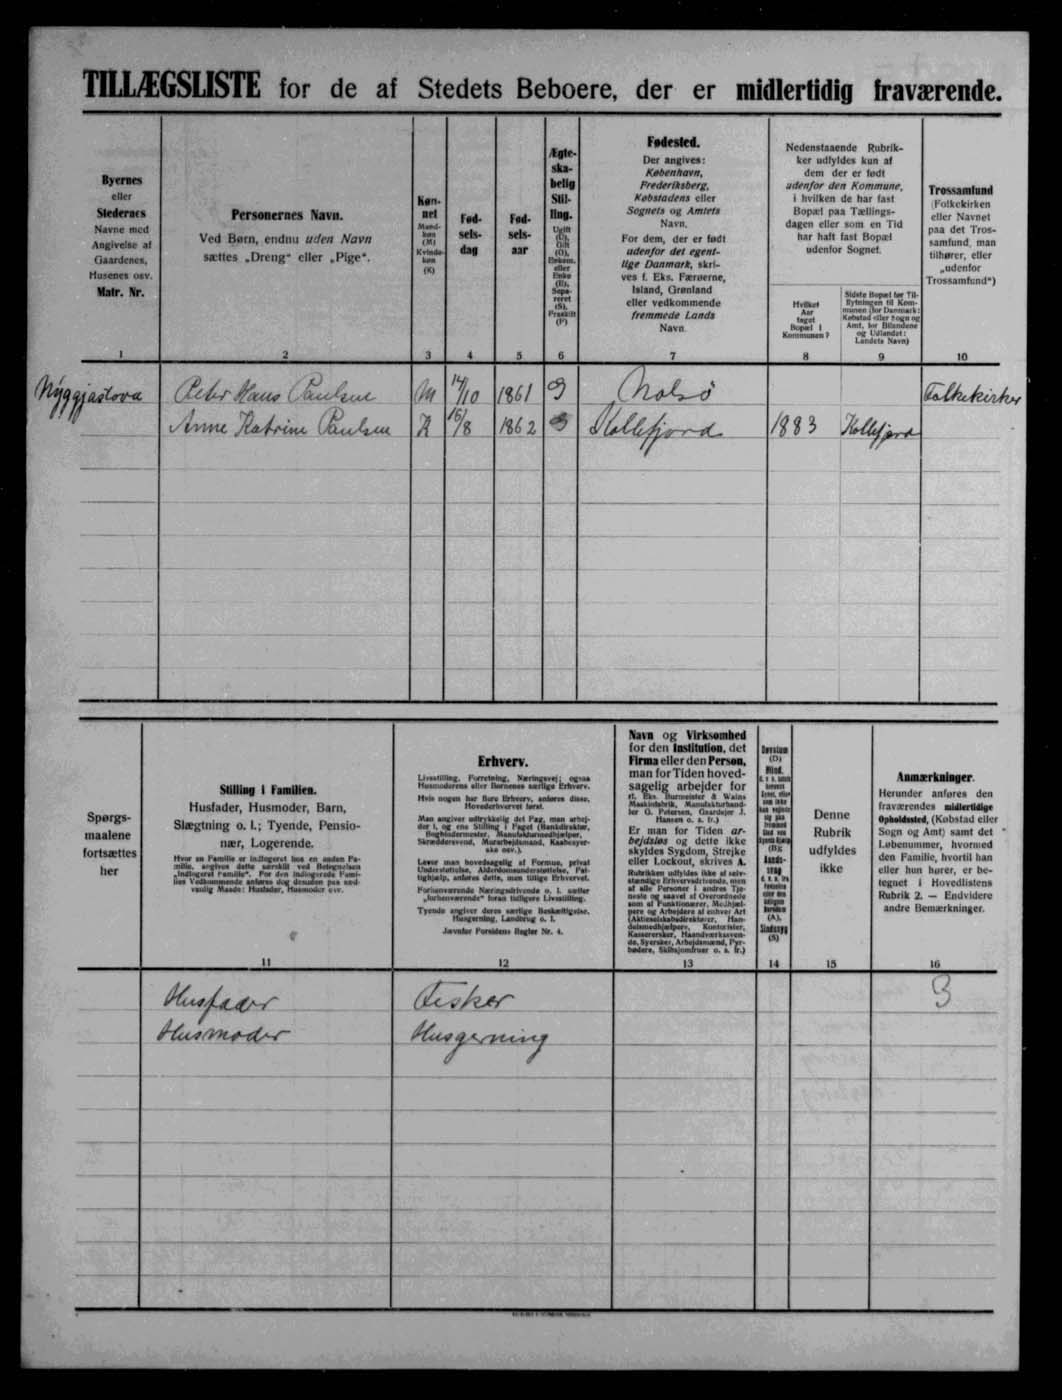 TILLÆGSLISTE for de af Stedets Beboere, der er midlertidig fraværende.
Byernes
eller
Stedernes
Navne med
Angivelse af
Gaardenes,
Husenes osv.
Matr. Nr.
1
Personernes Navn.
Ved Børn, endnu uden Navn
sættes „Dreng“ eller „Pige“.
2
Køn-
net
Mand-
køn
(M)
Kvinde-
køn
(K)
3
Fød-
sels-
dag
4
Fød-
sels-
aar
5
Ægte-
ska-
belig
Stil-
ling.
Ugift
(U),
Gift
(G),
Enkem.
eller
Enke
(E),
Sepa-
reret
(S),
Fraskilt
(F)
6
Fødested.
Der angives:
København,
Frederiksberg,
Købstadens eller
Sognets og Amtets
Navn.
For dem, der er født
udenfor det egent-
lige Danmark, skri-
ves f. Eks. Færøerne,
Island, Grønland
eller vedkommende
fremmede Lands
Navn.
7
Nedenstaaende Rubrik-
ker udfyldes kun af
dem der er født
udenfor den Kommune,
i hvilken de har fast
Bopæl paa Tællings-
dagen eller som en Tid
har haft fast Bopæl
udenfor Sognet.
Hvilket
Aar
taget
Bopæl i
Kommunen?
8
Sidste Bopæl før Til-
flytningen til Kom-
munen (for Danmark:
Købstad eller Sogn og
Amt, for Bilandene
og Udlandet:
Landets Navn)
9
Trossamfund
(Folkekirken
eller Navnet
paa det Tros-
samfund, man
tilhører, eller
„udenfor
Trossamfund“)
10
Nýggjastova Peter Hans Paulsen M 14/10 1861 G Nolsö Folkekirken
Anne Katrine Paulsen K 16/8 1862 G Kollefjord 1883 Kollefjord
Spørgs-
maalene
fortsættes
her
Stilling i Familien.
Husfader, Husmoder, Barn,
Slægtning o. l.; Tyende, Pensio-
nær, Logerende.
Hvor en Familie er indlogeret hos en anden Fa-
milie, angives dette særskilt ved Betegnelsen
„indlogeret Familie“. For den indlogerede Fami-
lies Vedkommende anføres dog desuden paa sæd-
vanlig Maade: Husfader, Husmoder osv.
11
Erhverv.
Livsstilling, Forretning, Næringsvej; ogsaa
Husmoderens eller Børnenes særlige Erhverv.
Hvis nogen har flere Erhverv, anføres disse,
Hovederhvervet først.
Man angiver udtrykkelig det Fag, man arbej-
der i, og ens Stilling i Faget (Bankdirektør,
Bogbindermester, Manufakturmedhjælper,
Skræddersvend, Murarbejdsmand, Kaabesyer-
ske osv.).
Lever man hovedsagelig af Formue, privat
Understøttelse, Alderdomsunderstøttelse, Fat-
tighjælp, anføres dette, men tillige Erhvervet.
Forhenværende Næringsdrivende o. l. sætter
„forhenværende“ foran tidligere Livsstilling.
Tyende angiver deres særlige Beskæftigelse,
Husgerning, Landbrug o. l.
Jævnfør Forsidens Regler Nr. 4.
12
Navn og Virksomhed
for den Institution, det
Firma eller den Person,
man for Tiden hoved-
sagelig arbejder for
(f. Eks. Burmeister & Wains
Maskinfabrik, Manufakturhand-
ler G. Petersen, Gaardejer J.
Hansen o. s. fr.)
Er man for Tiden ar-
bejdsløs og dette ikke
skyldes Sygdom, Strejke
eller Lockout, skrives A.
Rubrikken udfyldes ikke af selv-
stændige Erhvervsdrivende, men
af alle Personer i andres Tje-
neste og saavel af Overordnede
som af Funktionærer, Medhjæl-
pere og Arbejdere af enhver Art
(Aktieselskabsdirektører, Han-
delsmedhjælpere, Kontorister,
Kassererske​r, Haandværkssven-
de, Syersker, Arbejdsmænd, Pyr-
bødere, Skibsjomfruer o. s. fr.)
13
Døvstum
(D)
Blind,
(B);
Aands-
svag
(A),
Sindssyg
(S)
14
Denne
Rubrik
udfyldes
ikke
15
Anmærkninger.
Herunder anføres den
fraværendes midlertidige
Opholdssted, (Købstad eller
Sogn og Amt) samt det
Løbenummer, hvormed
den Familie, hvortil han
eller hun hører, er be-
tegnet i Hovedlistens
Rubrik 2. — Endvidere
andre Bemærkninger.
16
Husfader Fisker 3
Husmoder Husgerning